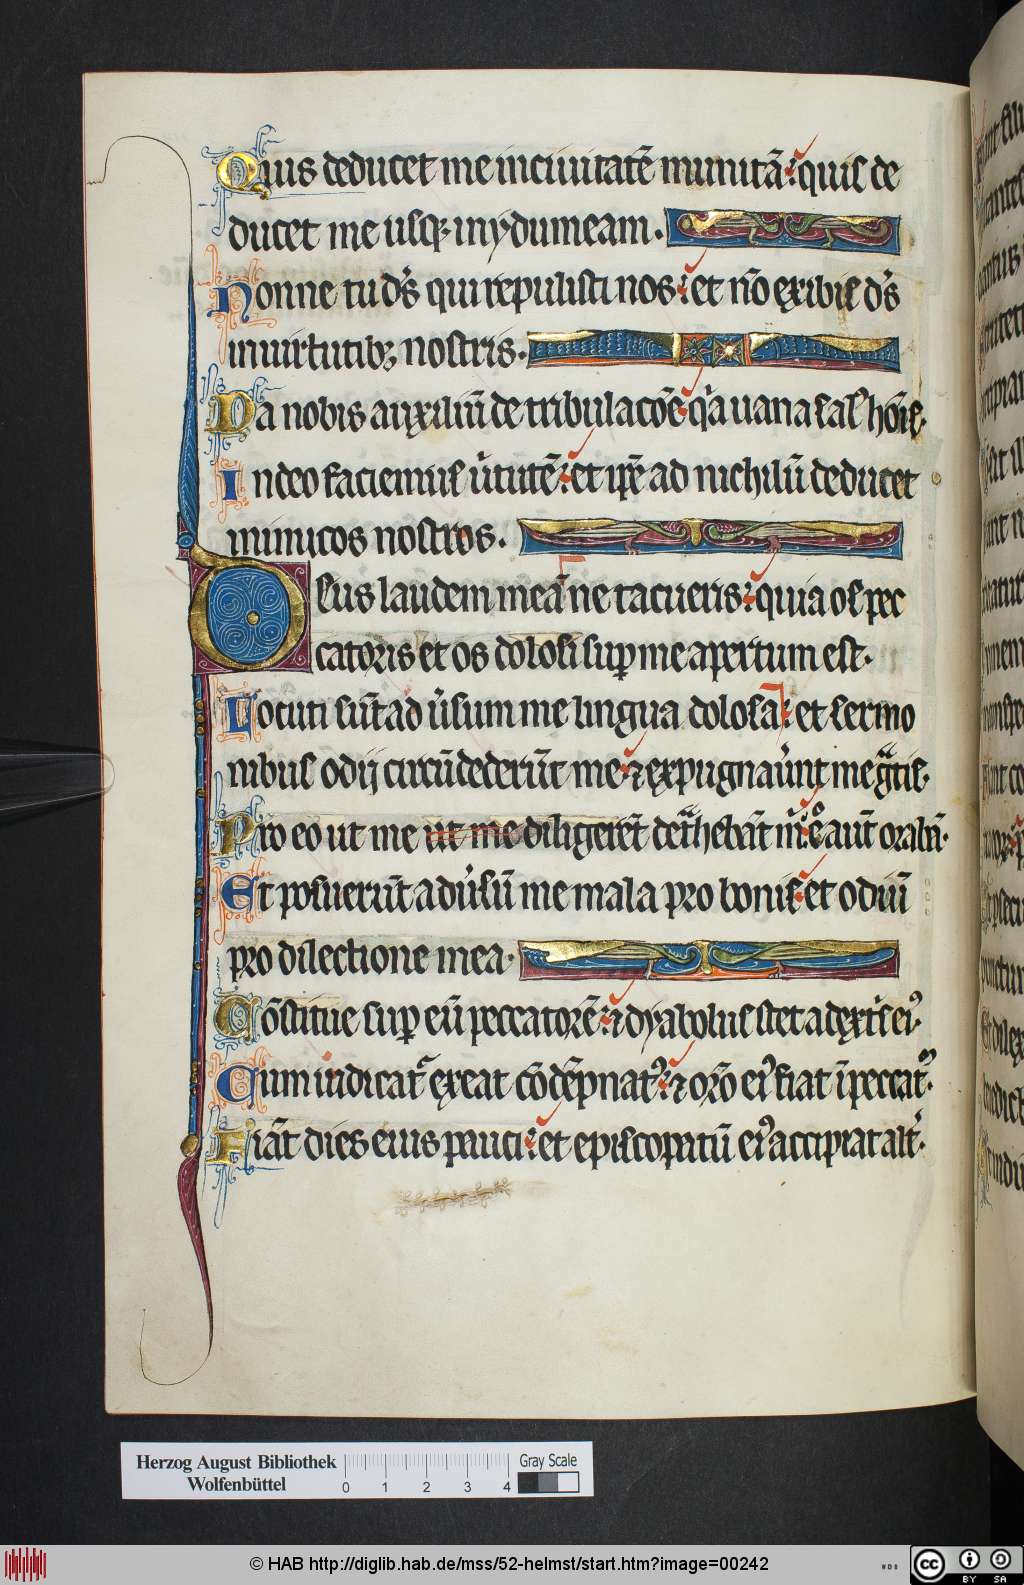 Quis deducet me inciuitatē munitā: quis de
ducet me usq; inydumeam.
Nonne tu ds̄ qui repulisti nos: et nō exibis ds̄
inuirtutibꝫ nostris.
Da nobis auxiliū de tribulacōe: qͥa uana sal᾽ hōis.
Indeo faciemus ūtutē: et ip̄e ad nichilū deducet
inimicos nostros.
Deus laudem meā ne tacueris: quia os pec
catoris et os dolosi suꝑ me apertum est.
Locuti sūt ad ūsum me lingua dolosa: et sermo
nibus odij circūdederūt me: ⁊ expugnauȓnt me gͣtis.
Pro eo ut me ut me diligerēt detͣhebāt m̄: eͦ aūt orabā.
Et posuerūt aduȓsū me mala pro bonis: et odiū
pro dilectione mea.
Cōstitue suꝑ eū peccatorē: ⁊ dyabolus stet adextȓs eiꝰ.
Cum iudicatͬ exeat cōdēpnatꝰ: ⁊ orō eiꝰ fiat ī peccatͫ.
Fiāt dies eius pauci: et episcopatū eiꝰ accipiat alt᾽.
Herzog August Bibliothek
Wolfenbüttel
0 1 2 3 4
Gray Scale
© HAB http://diglib.hab.de/mss/52-helmst/start.htm?image=00242
WDB
cc BY SA